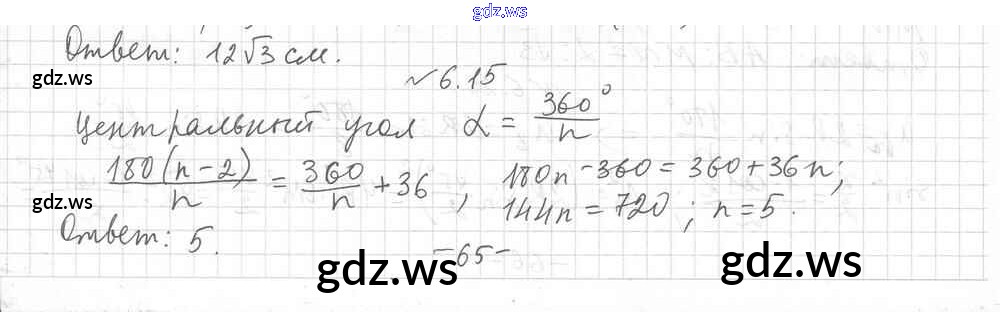 gdz.ws
Ответ: 12√3 см.
gdz.ws
№ 6.15
Центральный угол α = 360°/n
180(n-2)/n = 360/n + 36, 180n - 360 = 360 + 36n;
gdz.ws
144n = 720; n = 5.
Ответ: 5.
-65-
gdz.ws
gdz.ws